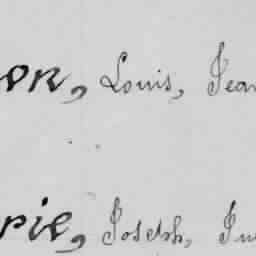 on, Louis, Jean
rie, Joseph,